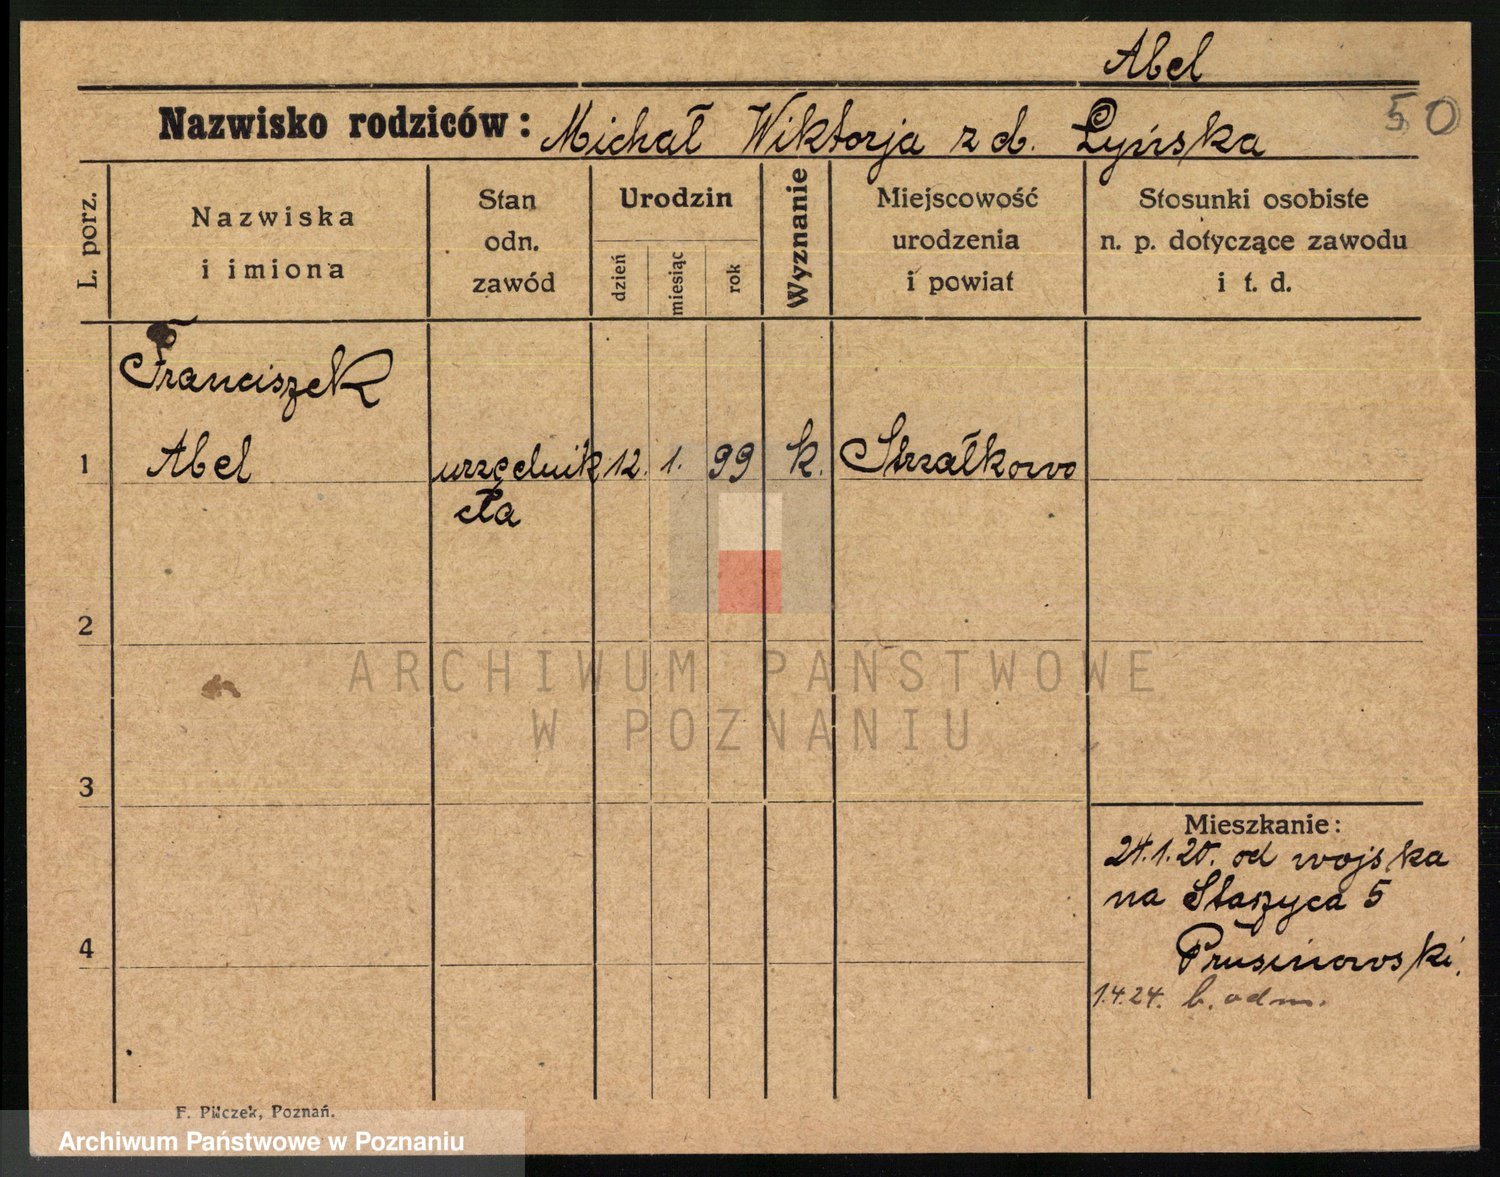 Abel
Nazwisko rodziców: Michał Wiktorja z d. Łyńska
50
L. porz.
Nazwiska
i imiona
Stan
odn.
zawód
Urodzin
dzień
miesiąc
rok
Wyznanie
Miejscowość
urodzenia
i powiat
Stosunki osobiste
n. p. dotyczące zawodu
i t. d.
Franciszek
1 Abel urzędnik 12. 1. 99 k. Strzałkowo
cła
2
ARCHIWUM PAŃSTWOWE
W POZNANIU
3
Mieszkanie:
24.1.20. od wojska
na Staszyca 5
4 Prusinowski.
1.4.24. b. odm.
F. Pilczek, Poznań.
Archiwum Państwowe w Poznaniu